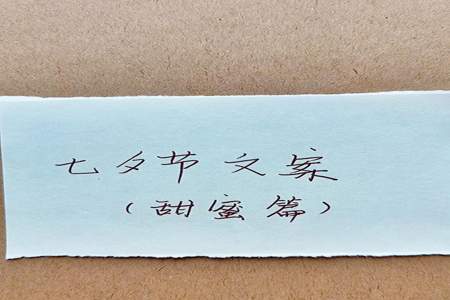 七夕节文案
（甜蜜篇）